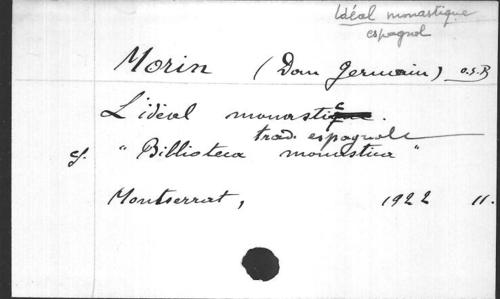 Idéal monastique
espagnol
Morin (Dom Germain) O.S.B
L'idéal monastic.
trad. espagnole
cf. "Billioteca monastica"
Montserrat, 1922 11.